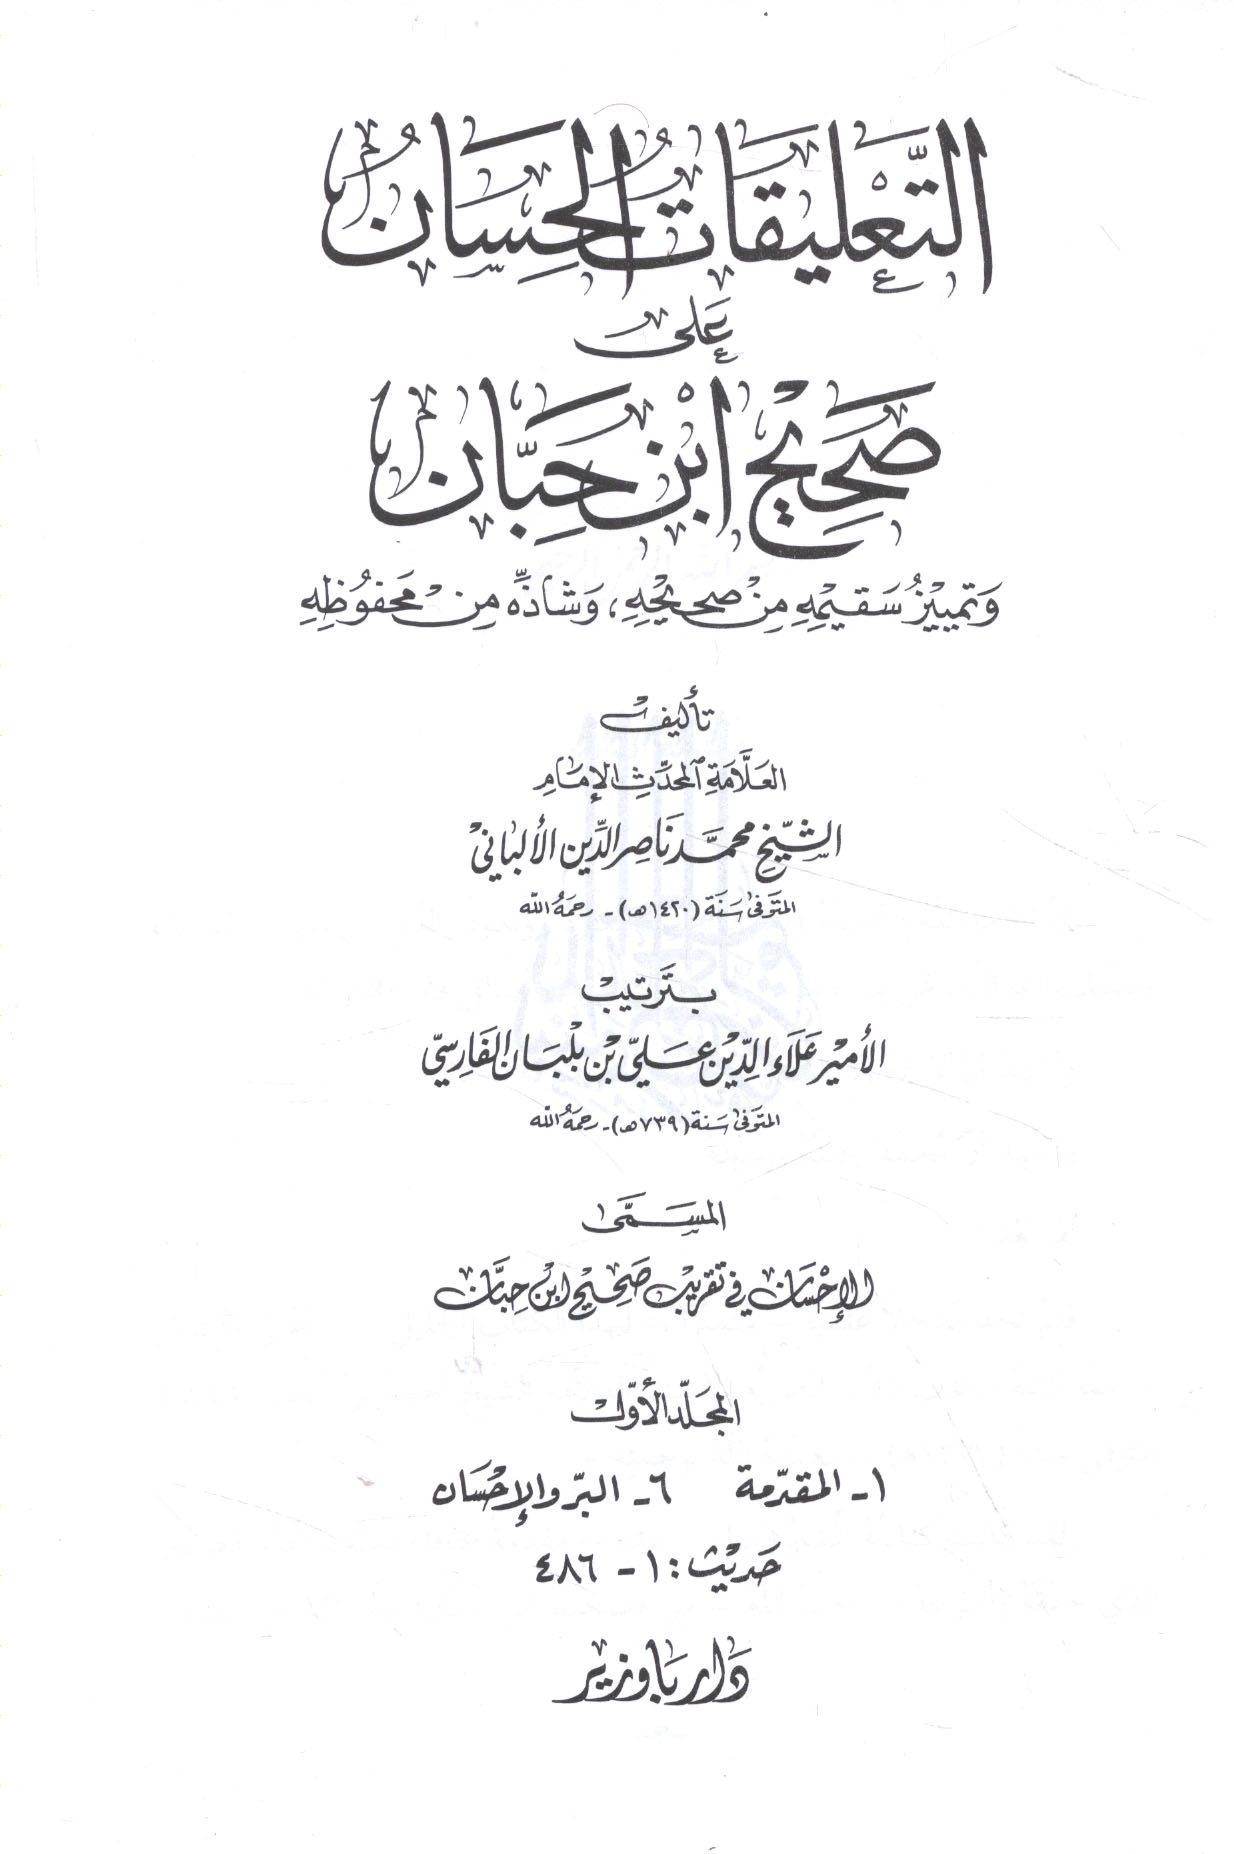 التَّعْلِيقَاتُ الحِسَانُ
عَلَى
صَحِيْحِ ابْنِ حِبَّان
وَتَمْيِيْزُ سَقِيْمِهِ مِنْ صَحِيْحِهِ، وَشَاذِّهِ مِنْ مَحْفُوظِهِ
تأليفْ
العَلَّامَةِ المحَدِّثِ الإِمَامِ
الشَّيْخِ محمَّد نَاصِر الدِّين الأَلبَانيْ
المتَوَفىٰ سَنَة (١٤٢٠هـ) - رحمَهُ الله
بترتيبْ
الأَمير عَلَاء الدِّيْن عَليّ بْن بلْبَان الفَارسيّ
المتَوَفىٰ سَنة (٧٣٩هـ) - رحمَهُ الله
المسَمَّىٰ
الإِحْسَان في تقريْب صَحِيْح ابْن حِبَّان
المجَلّد الأَوّل
١ - المقدّمة ٦ - البرّ والإِحْسَان
حَديْث : ١ - ٤٨٦
دَار بَاوَزير